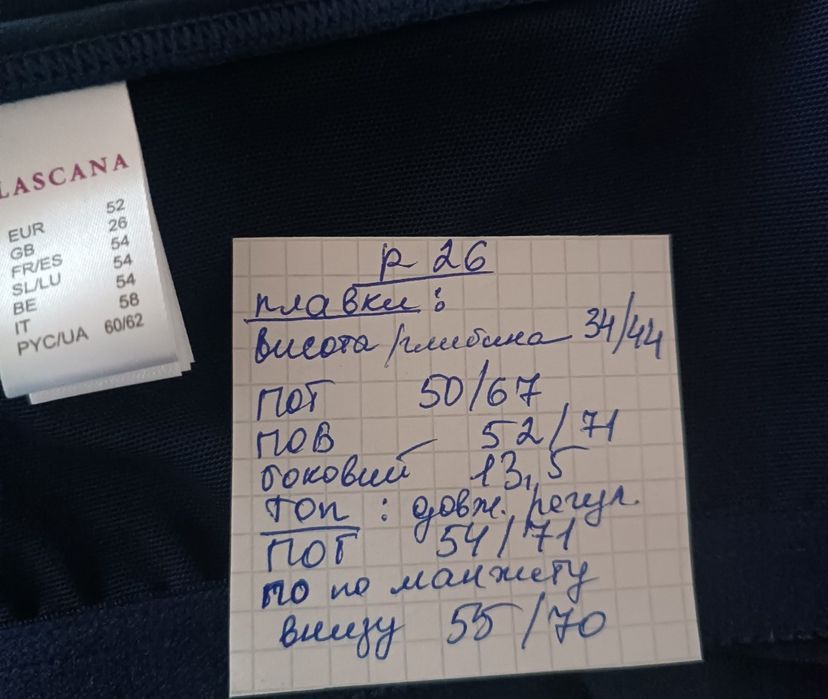 LASCANA
EUR 52
GB 26
FR/ES 54
SL/LU 54
BE 54
IT 58
РУС/UA 60/62
р 26
плавки:
висота/глибина 34/44
ПОТ 50/67
ПОВ 52/71
боковий 13,5
Топ: довж. регул.
ПОГ 54/71
ПО по манжету
внизу 55/70